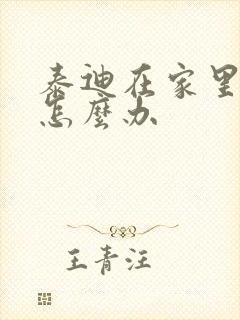 泰迪在家里
怎麼办
王青汪